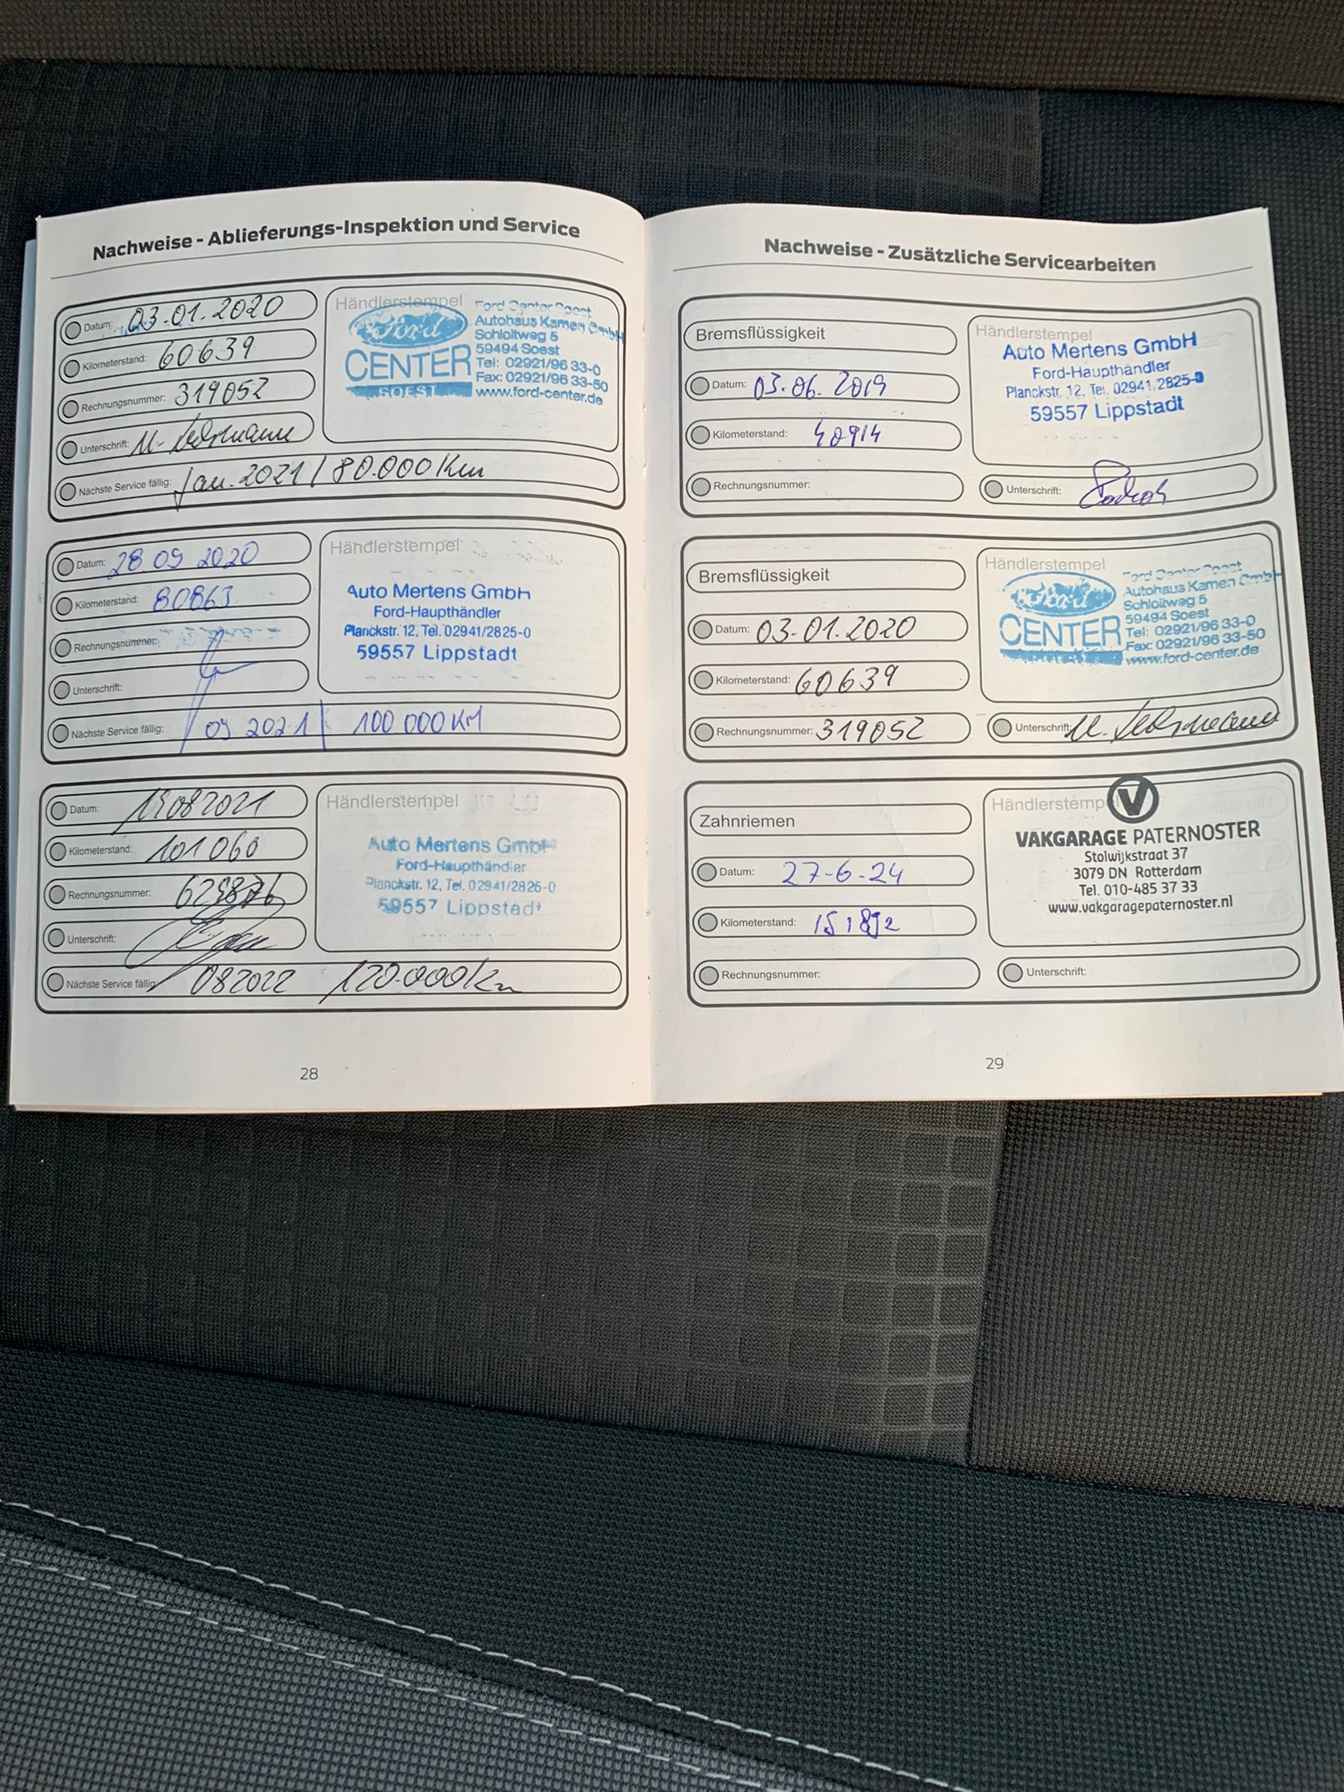 Nachweise - Ablieferungs-Inspektion und Service
Datum: 03.01.2020
Kilometerstand: 60639
Rechnungsnummer: 319052
Unterschrift:
Nächste Service fällig: Jan. 2021 / 80.000 Km
Händlerstempel
Ford
CENTER
SOEST
Ford Center Soest
Autohaus Kamen GmbH
Schloitweg 5
59494 Soest
Tel: 02921/96 33-0
Fax: 02921/96 33-50
www.ford-center.de
Datum: 28 09 2020
Kilometerstand: 80863
Rechnungsnummer:
Unterschrift:
Nächste Service fällig: 09 2021 | 100 000 KM
Händlerstempel
Auto Mertens GmbH
Ford-Haupthändler
Planckstr. 12, Tel. 02941/2825-0
59557 Lippstadt
Datum: 082021
Kilometerstand: 101060
Rechnungsnummer:
Unterschrift:
Nächste Service fällig: 082022 120.000 Km
Händlerstempel
Auto Mertens GmbH
Ford-Haupthändler
Planckstr. 12, Tel. 02941/2825-0
59557 Lippstadt
28
Nachweise - Zusätzliche Servicearbeiten
Bremsflüssigkeit
Datum: 03.06.2019
Kilometerstand: 40914
Rechnungsnummer:
Händlerstempel
Auto Mertens GmbH
Ford-Haupthändler
Planckstr. 12, Tel. 02941 2825-0
59557 Lippstadt
Unterschrift:
Bremsflüssigkeit
Datum: 03.01.2020
Kilometerstand: 60639
Rechnungsnummer: 319052
Händlerstempel
Ford
CENTER
Ford Center Soest
Autohaus Kamen GmbH
Schloitweg 5
59494 Soest
Tel: 02921/96 33-0
Fax: 02921/96 33-50
www.ford-center.de
Unterschrift:
Zahnriemen
Datum: 27-6-24
Kilometerstand:
Rechnungsnummer:
Händlerstemp
V
VAKGARAGE PATERNOSTER
Stolwijkstraat 37
3079 DN Rotterdam
Tel. 010-485 37 33
www.vakgaragepaternoster.nl
Unterschrift:
29